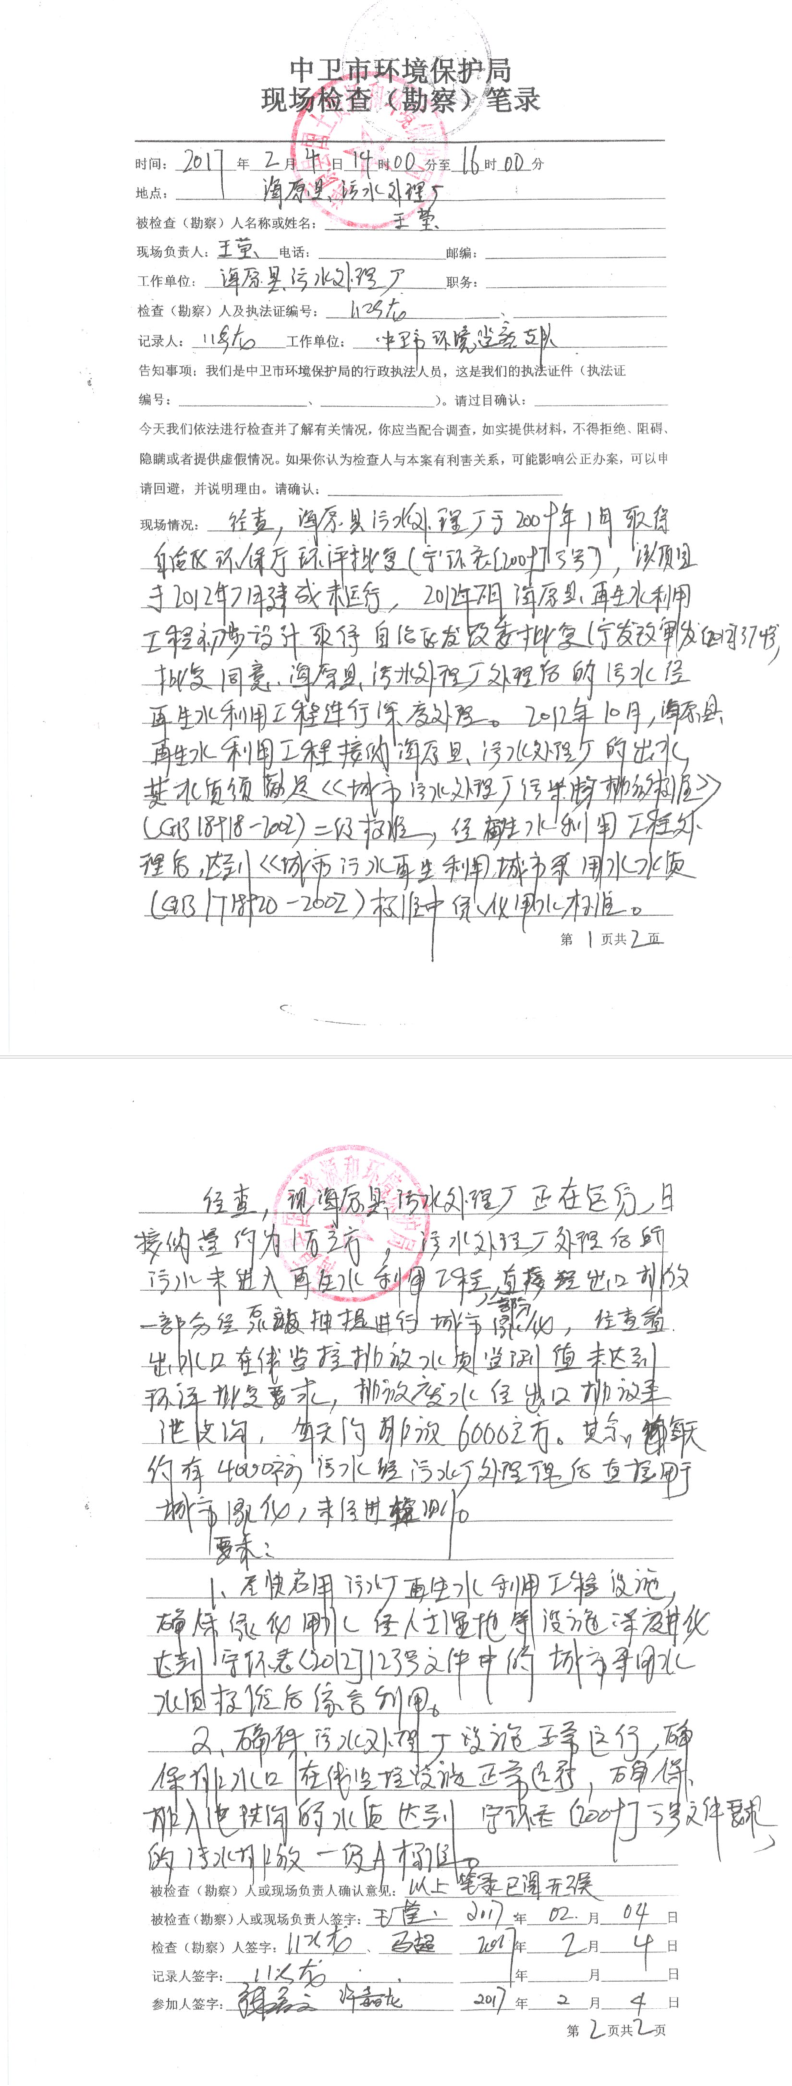 中卫市环境保护局
现场检查（勘察）笔录
时间：2017年2月4日14时00分至16时00分
地点：海原县污水处理厂
被检查（勘察）人名称或姓名：王莹
现场负责人：王莹 电话： 邮编：
工作单位：海原县污水处理厂 职务：
检查（勘察）人及执法证编号：
记录人： 工作单位：中卫市环境监察支队
告知事项：我们是中卫市环境保护局的行政执法人员，这是我们的执法证件（执法证
编号： 、 ）。请过目确认：
今天我们依法进行检查并了解有关情况，你应当配合调查，如实提供材料，不得拒绝、阻碍、
隐瞒或者提供虚假情况。如果你认为检查人与本案有利害关系，可能影响公正办案，可以申
请回避，并说明理由。请确认：
现场情况：经查，海原县污水处理厂于2009年1月取得
自治区环保厅环评批复（宁环表[2009]5号），该项目
于2012年7月建成未运行，2012年 月海原县再生水利用
工程初步设计取得自治区发改委批复（宁发改审发
批复同意海原县污水处理厂处理后的污水经
再生水利用工程进行深度处理。2012年10月，海原县
再生水利用工程接纳海原县污水处理厂的出水，
其水质须满足《城市污水处理厂污染物排放标准》
（GB18918-2002）二级标准，经再生水利用工程处
理后，达到《城市污水再生利用城市杂用水水质
（GB/T18920-2002）标准中绿化用水标准。
第1页共2页
经查，现海原县污水处理厂正在运行，日
接纳量约为1万立方，污水处理厂处理后的
污水未进入再生水利用工程，一部分直接经出口排放
一部分经泵 抽提进行城市绿化，经查看
出水口在线监控排放水质监测值未达到
环评批复要求，排放废水经出口排放至
，每天约排放6000立方。其余 每天
约有4000立方污水经污水厂处理 后直接用于
城市绿化，未经进 。
要求：
1、尽快启用污水厂再生水利用工程设施，
确保绿化用水经人工湿地等设施深度净化
达到宁环表[2012]123号文件中的城市杂用水
水质标准后综合利用。
2、确保污水处理厂设施正常运行，确
保排水口在线监控设施正常运行，确保
排入 沟的水质达到宁环表[2009]5号文件要求
的污水排放一级A标准。
被检查（勘察）人或现场负责人确认意见：以上笔录已阅无误
被检查（勘察）人或现场负责人签字：王莹 2017年02月04日
检查（勘察）人签字： 、马超 2017年2月4日
记录人签字： 年 月 日
参加人签字： 2017年2月4日
第2页共2页